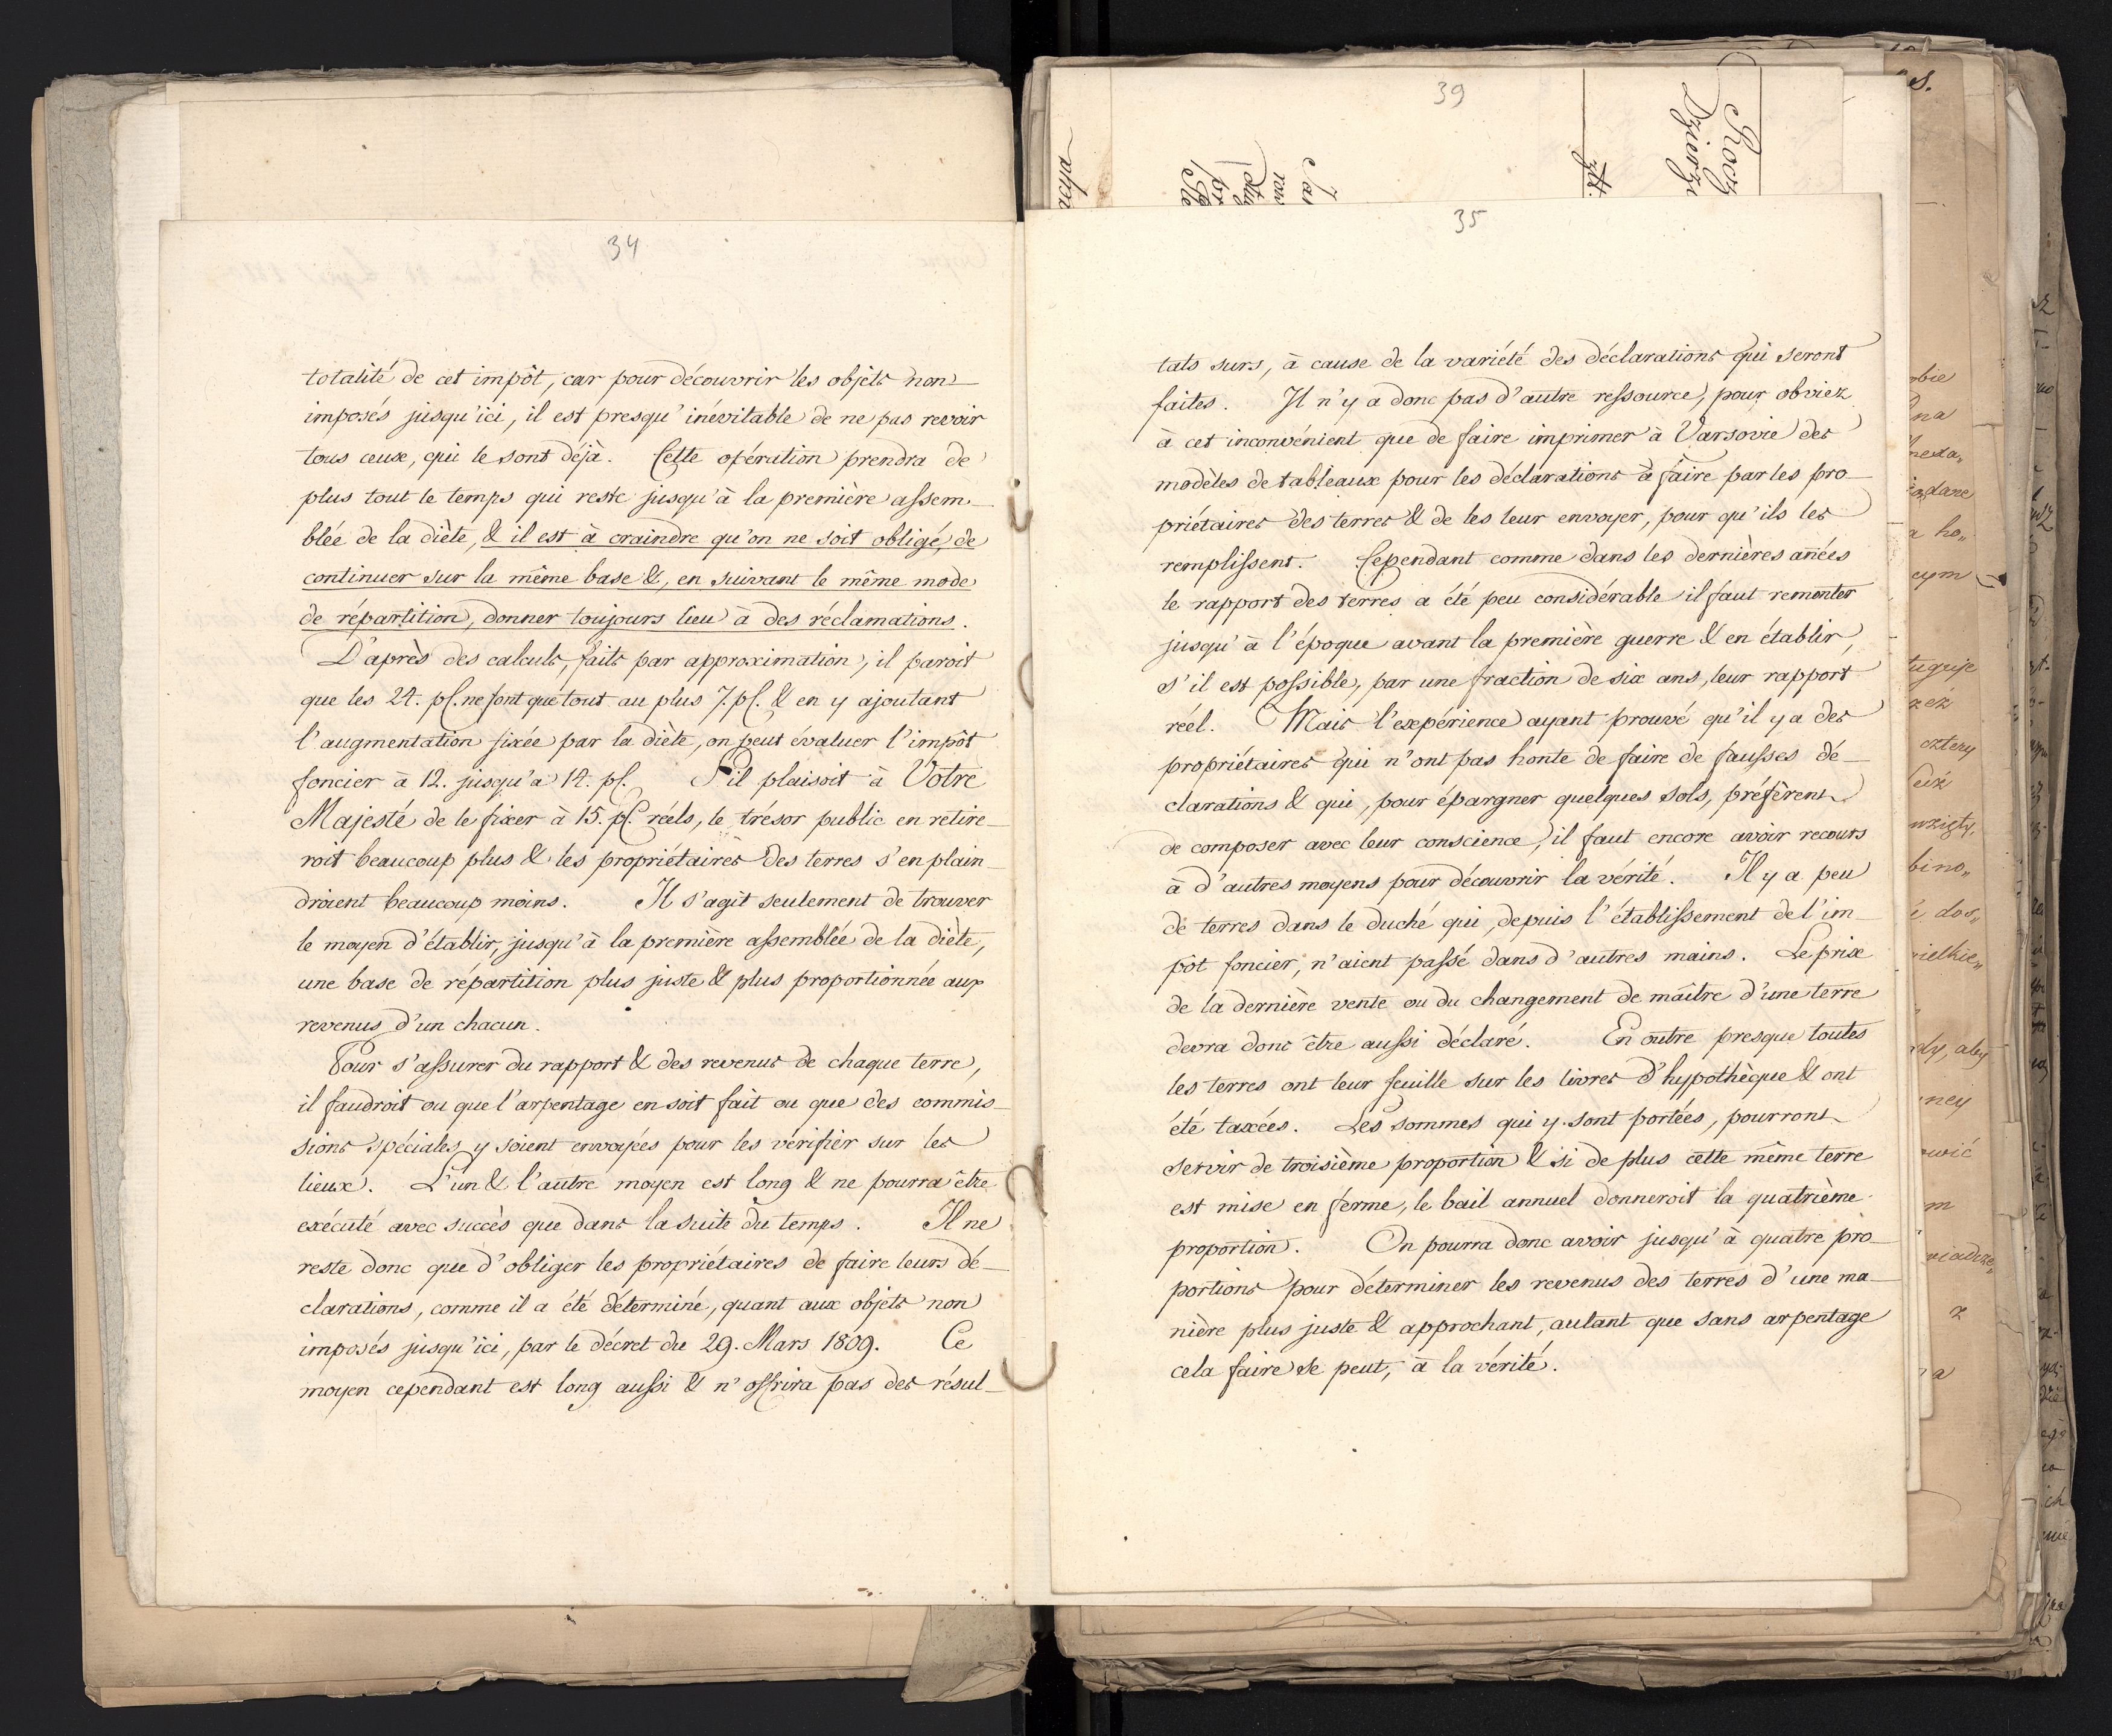 34
totalité de cet impôt, car pour découvrir les objets non
imposés jusqu'ici, il est presqu'inévitable de ne pas revoir
tous ceux, qui le sont déjà. Cette opération prendra de
plus tout le temps qui reste jusqu'à la première assem-
blée de la diète, & il est à craindre qu'on ne soit obligé, de
continuer sur la même base &, en suivant le même mode
de répartition, donner toujours lieu à des réclamations.
D'après des calculs, faits par approximation, il paroit
que les 24. pf. ne font que tout au plus 7. pf. & en y ajoutant
l'augmentation fixée par la diète, on peut évaluer l'impôt
foncier à 12. jusqu'à 14. pf. S'il plaisoit à Votre
Majesté de le fixer à 15. pf. réels, le trésor public en retire-
roit beaucoup plus & les propriétaires des terres s'en plain-
droient beaucoup moins. Il s'agit seulement de trouver
le moyen d'établir, jusqu'à la première assemblée de la diète,
une base de répartition plus juste & plus proportionnée aux
revenus d'un chacun.
Pour s'assurer du rapport & des revenus de chaque terre,
il faudroit ou que l'arpentage en soit fait ou que des commis-
sions spéciales y soient envoyées pour les vérifier sur les
lieux. L'un & l'autre moyen est long & ne pourra être
exécuté avec succès que dans la suite du temps. Il ne
reste donc que d'obliger les propriétaires de faire leurs dé-
clarations, comme il a été déterminé, quant aux objets non
imposés jusqu'ici, par le décret du 29. Mars 1809. Ce
moyen cependant est long aussi & n'offrira pas des résul-
39
35
tats surs, à cause de la variété des déclarations qui seront
faites. Il n'y a donc pas d'autre ressource, pour obviez
à cet inconvénient que de faire imprimer à Varsovie des
modèles de tableaux pour les déclarations à faire par les pro-
priétaires des terres & de les leur envoyer, pour qu'ils les
remplissent. Cependant comme dans les dernières anées
le rapport des terres a été peu considérable il faut remonter
jusqu'à l'époque avant la première guerre & en établir,
s'il est possible, par une fraction de six ans, leur rapport
réel. Mais l'expérience ayant prouvé qu'il y a des
propriétaires qui n'ont pas honte de faire de fausses dé-
clarations & qui, pour épargner quelques sols, préfèrent
de composer avec leur conscience, il faut encore avoir recours
à d'autres moyens pour découvrir la vérité. Il y a peu
de terres dans le duché qui, depuis l'établissement de l'im-
pôt foncier, n'aient passé dans d'autres mains. Le prix
de la dernière vente ou du changement de maître d'une terre
devra donc être aussi déclaré. En outre presque toutes
les terres ont leur feuille sur les livres d'hypothèque & ont
été taxées. Les sommes qui y sont portées, pourront
servir de troisième proportion & si de plus cette même terre
est mise en ferme, le bail annuel donneroit la quatrième
proportion. On pourra donc avoir jusqu'à quatre pro-
portions pour déterminer les revenus des terres d'une ma-
nière plus juste & approchant, autant que sans arpentage
cela faire se peut, à la vérité.